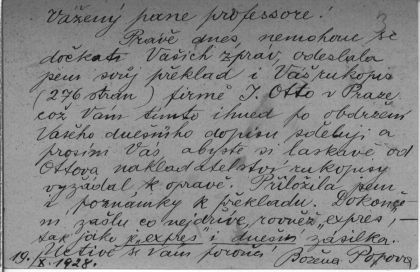 Vážený pane professore!
Právě dnes, nemohouc se
dočkati Vašich zpráv, odeslala
jsem svůj překlad i Váš rukopis
(276 stran) firmě J. Otto v Praze
což Vám tímto ihned po obdržení
Vašeho dnešního dopisu sděluji a
prosím Vás, abyste si laskavě od
Ottova nakladatelství rukopisy
vyžádal k opravě. Přiložila jsem
i poznámky k překladu. Dokonče-
ní zašlu co nejdříve, rovněž „expres",
tak jako „expres" i dnešní zásilka.
Uctivě se Vám poroučí
19./X. 1928. Božena Popova